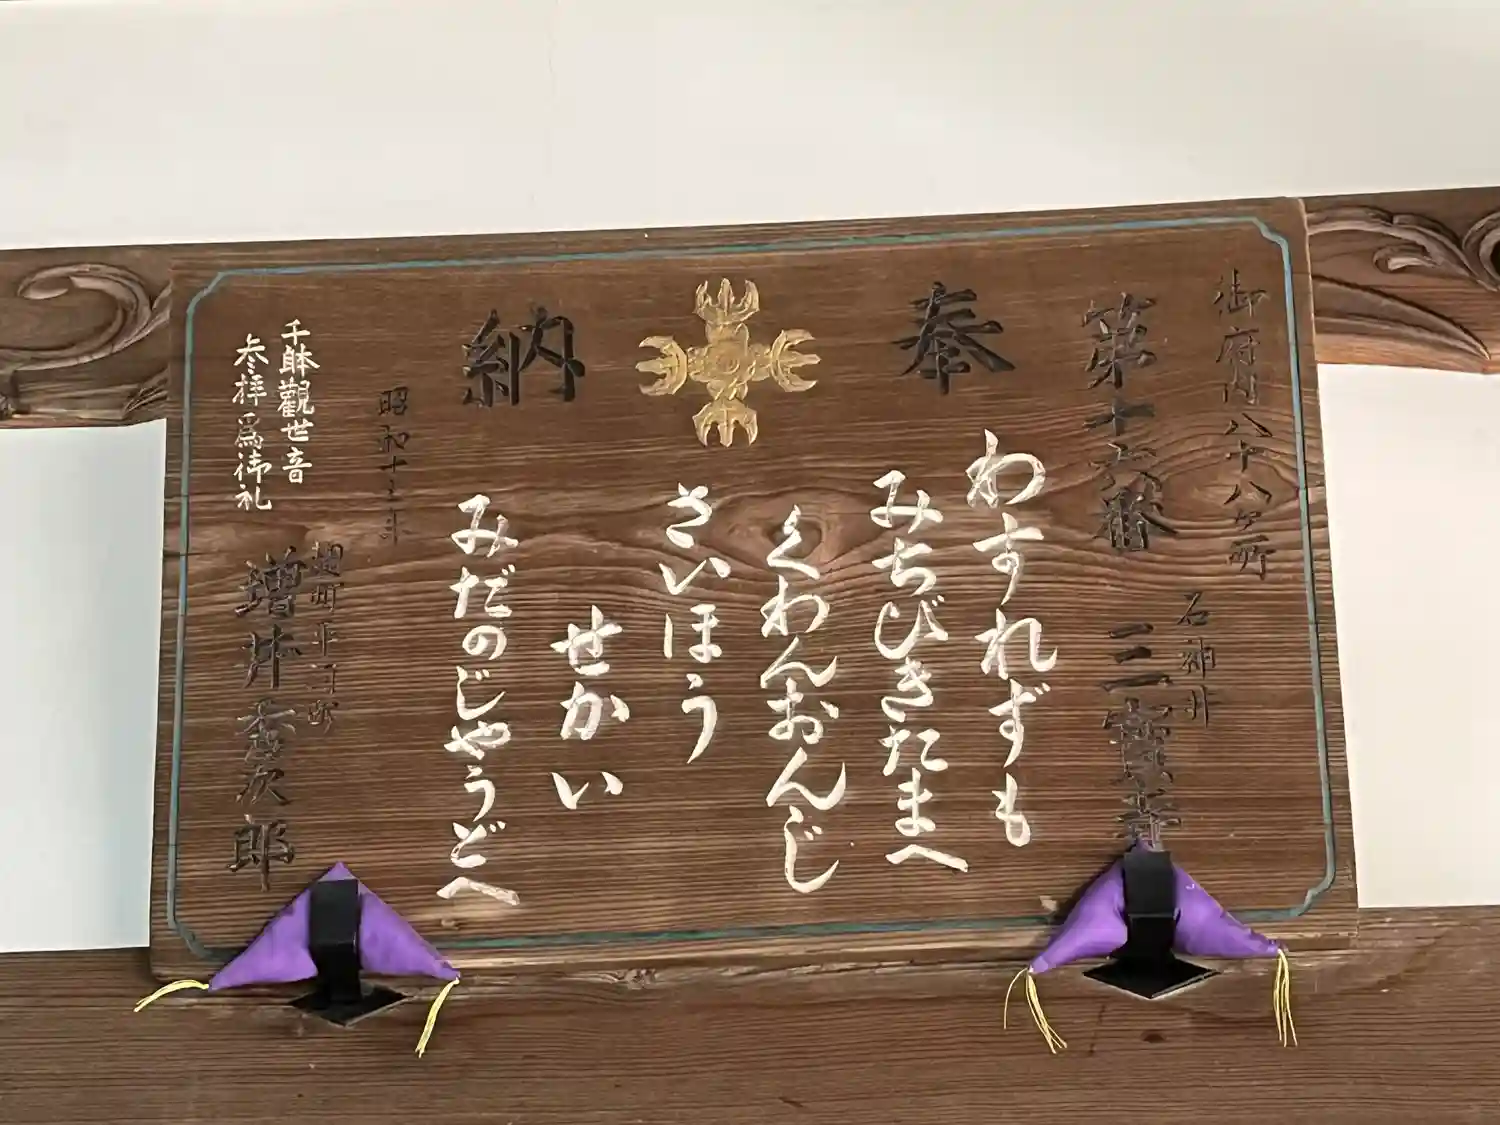 御府内八十八ヶ所
第十六番
石神井
三寳寺
奉納
わすれずも
みちびきたまへ
くわんおんじ
さいほう
せかい
みだのじやうどへ
昭和十三年
千躰觀世音
参拝爲御礼
麹町平河町
増井喜次郎